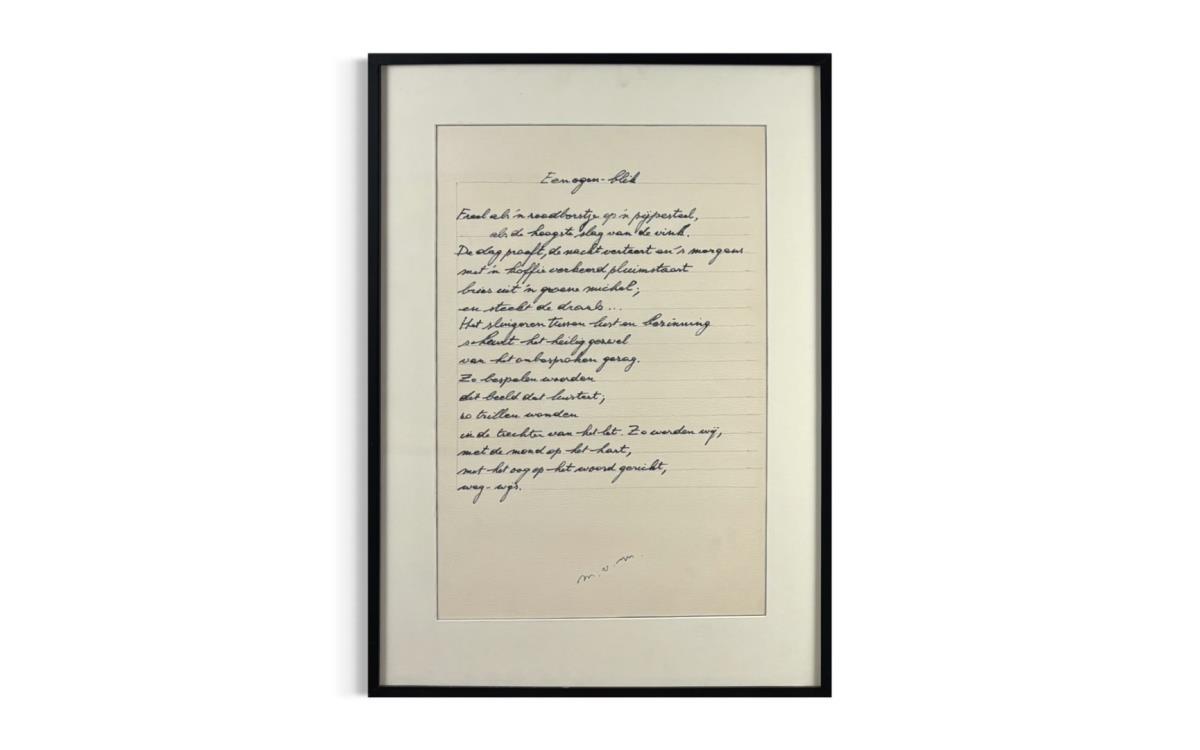 Eenogen-blik
Freel als 'n roodborstje op 'n pijpesteel,
als de hoogste slag van de vink.
De dag proeft, de nacht verteert en 's morgens
met 'n koffie verkeerd pluimstaart
bries uit 'n groene michel;
en steekt de draak...
Het slingeren tussen lust en bezinning
scheurt het heilig gezwel
van het onbesproken gezag.
Zo bespelen woorden
dit beeld dat luistert;
zo trillen wonden
in de trechter van het lot. Zo worden wij,
met de mond op het hart,
met het oog op het woord gericht,
weg-wijs.
m.v.m.